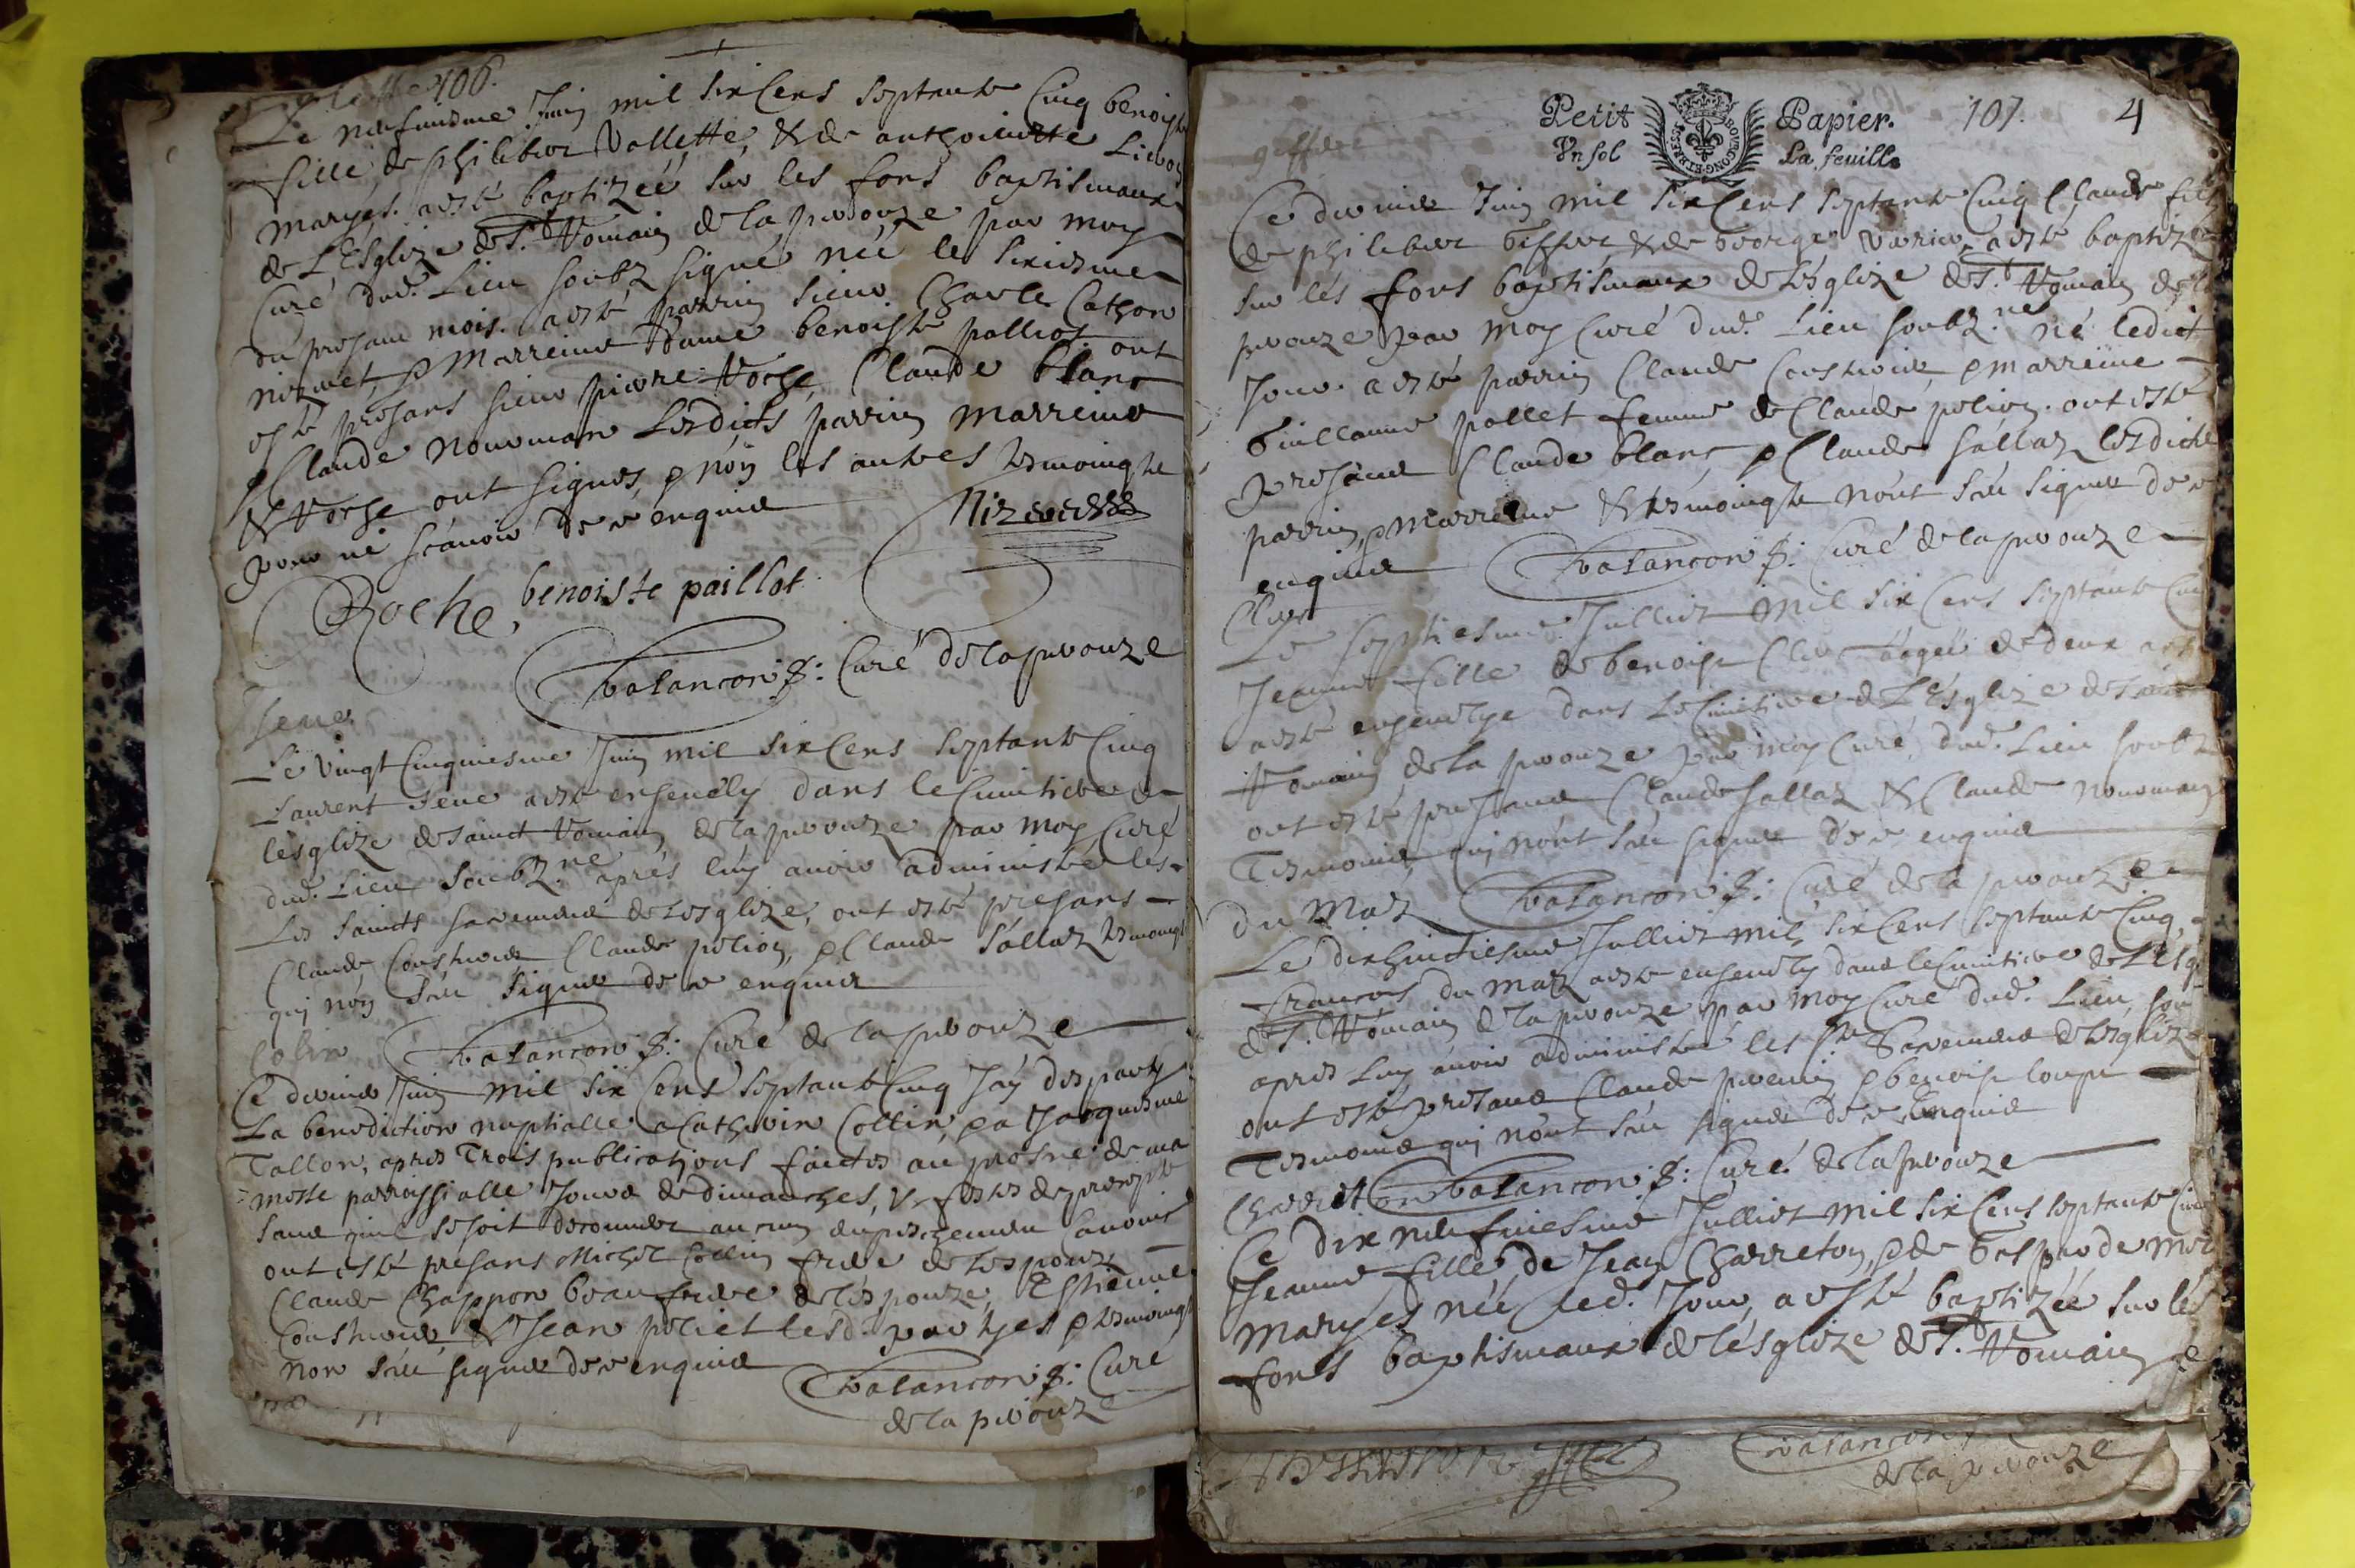 106.
Le neufuiesme Juin mil six Cens septante Cinq benoiste
fille de philibert Vallette, & de anthoinette
maryés. a esté baptizée sur les fons baptismaux
de L'Esglize de St. Romain de la perouze par moy
Curé dud. Lieu soubz signé née le sixiesme
du presant mois. a esté parrin sieur Charle Cathon
et Marreine dame benoiste palliot ont
esté presans sieur pierre Roche, Claude blanc
& Claude nouuman Lesdicts parrin marreine
& Roche ont signés, & non les autres tesmoingtz
pour ne scauoir de ce enquis
Roche, benoiste paillot
Chalancon p: Curé de la perouze
Seue
Le vingt Cinquiesme Juin mil six Cens septante Cinq
Laurent Seue a esté enseuely dans le Cimitiere de
lésglize de sainct Romain de la perouze par moy Curé
dud. Lieu soubz.né aprés luy auoir administré les
Les saincts sacremens de Lesglize, ont esté presans
Claude Claude polion, & Claude Sallaz tesmoingtz
qui non sceu signer de ce enquis
Chalancon p: Curé de la perouze
Colin
Ce dernier Juin mil six Cens septante Cinq Jay desparty
La benediction nuptialle a Catherin Collin, & a Jacquesme
Tallon, apres Trois publications faictes au prosne de ma
messe parroissialle Jours de dimanches, & festes de precepte
sans qu'il se soit decouuert aucun empeschement Canonic
ont esté presans Michel Collin frere de Lespoux
Claude Chappon beaufrere de lespouze, Estienne
& Jean poliet lesd. partyes & tesmoingtz
non sceu signer de ce enquis
Chalancon p: Curé
de la perouze
Petit Papier. 107. 4
Vn sol La feuille
BOVRGONG. ET BRESSE
Ce dernier Juin mil six Cens septante Cinq Claude fils
de philibert Giffert & de George a esté baptizé
sur les fons baptismaux de Lesglize de St. Romain de la
perouze par moy Curé dud. Lieu soubz.né né ledict
Jour a esté parrin Claude & marreine
Guillauma pollet femme de Claude polion. ont esté
presans Claude blanc & Claude Sallaz lesdicts
parrin, & Marreine & tesmoingtz nont sceu signer de ce
enquis Chalancon p: Curé de la perouze
Clerc
Le septiesme Julliet mil six Cens septante Cinq
Jeanne fille de benoist Clerc aagée de deux ans
a esté enseuelye dans le Cimitiere de L'Esglize de Sainct
Romain de la perouze par moy Curé, dud. Lieu soubz
ont esté presans Claude Sallaz & Claude nouuman
Tesmoins qui nont sceu signer de ce enquis
Chalancon p: Curé de la perouze
du Maz
Le dixhuictiesme Julliet mil six Cens septante Cinq,
francois du maz a esté enseuely dans le Cimitiere de Lésg
de St. Romain de la perouze par moy Curé dud. Lieu, sou
apres Luy auoir administré les Sts Sacremens de Lesglize
ont esté presans Claude perenin & benoist loupt
Tesmoins qui nont sceu signer de ce Enquis
Chalancon p: Curé de la perouze
Charreton
Ce dix neufuiesme Julliet mil six Cens septante Cinq
Jeanne fille de Jean Charreton, & de Gasparde
maryes née led. Jour, a esté baptizée sur les
fonts baptismaux de lésglize de St. Romain de
Chalancon
de la perouze